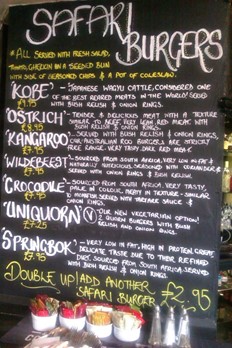 SAFARI
BURGERS
*ALL SERVED WITH FRESH SALAD,
TOMATO, GHERKIN ON A SEEDED BUN
WITH SIDE OF SEASONED CHIPS & A POT OF COLESLAW.
'KOBE' - JAPANESE WAGYU CATTLE, CONSIDERED ONE
OF THE BEST REARED MEATS IN THE WORLD! SERVED
WITH BUSH RELISH & ONION RINGS.
'OSTRICH' - TENDER & DELICIOUS MEAT WITH A TEXTURE
SIMILAR TO BEEF, VERY LEAN RED MEAT, WITH
BUSH RELISH & ONION RINGS.
'KANGAROO' SERVED WITH BUSH RELISH & ONION RINGS,
OUR AUSTRALIAN ROO BURGERS ARE STRICTLY
FREE RANGE, VERY DARK RED MEAT &
'WILDEBEEST' - SOURCED FROM SOUTH AFRICA, VERY LOW IN FAT &
WITH BUSH RELISH & ONION RINGS.
'CROCODILE' - SOURCED FROM SOUTH AFRICA, VERY TASTY,
PALE IN COLOUR, MEATY IN TEXTURE - SIMILAR
TO MONKFISH SERVED WITH TARTARE SAUCE &
'UNIQUORN' (V) - OUR NEW VEGETARIAN OPTION!
£7.25
2 QUORN BURGERS WITH BUSH
RELISH AND ONION RINGS.
'SPRINGBOK' - VERY LOW IN FAT, HIGH IN PROTEIN, GREAT
DELICATE TASTE DUE TO THEIR REFINED
DIET. SOURCED FROM SOUTH AFRICA. SERVED
WITH BUSH RELISH & ONION RINGS.
DOUBLE UP! ADD ANOTHER
SAFARI BURGER £2.95